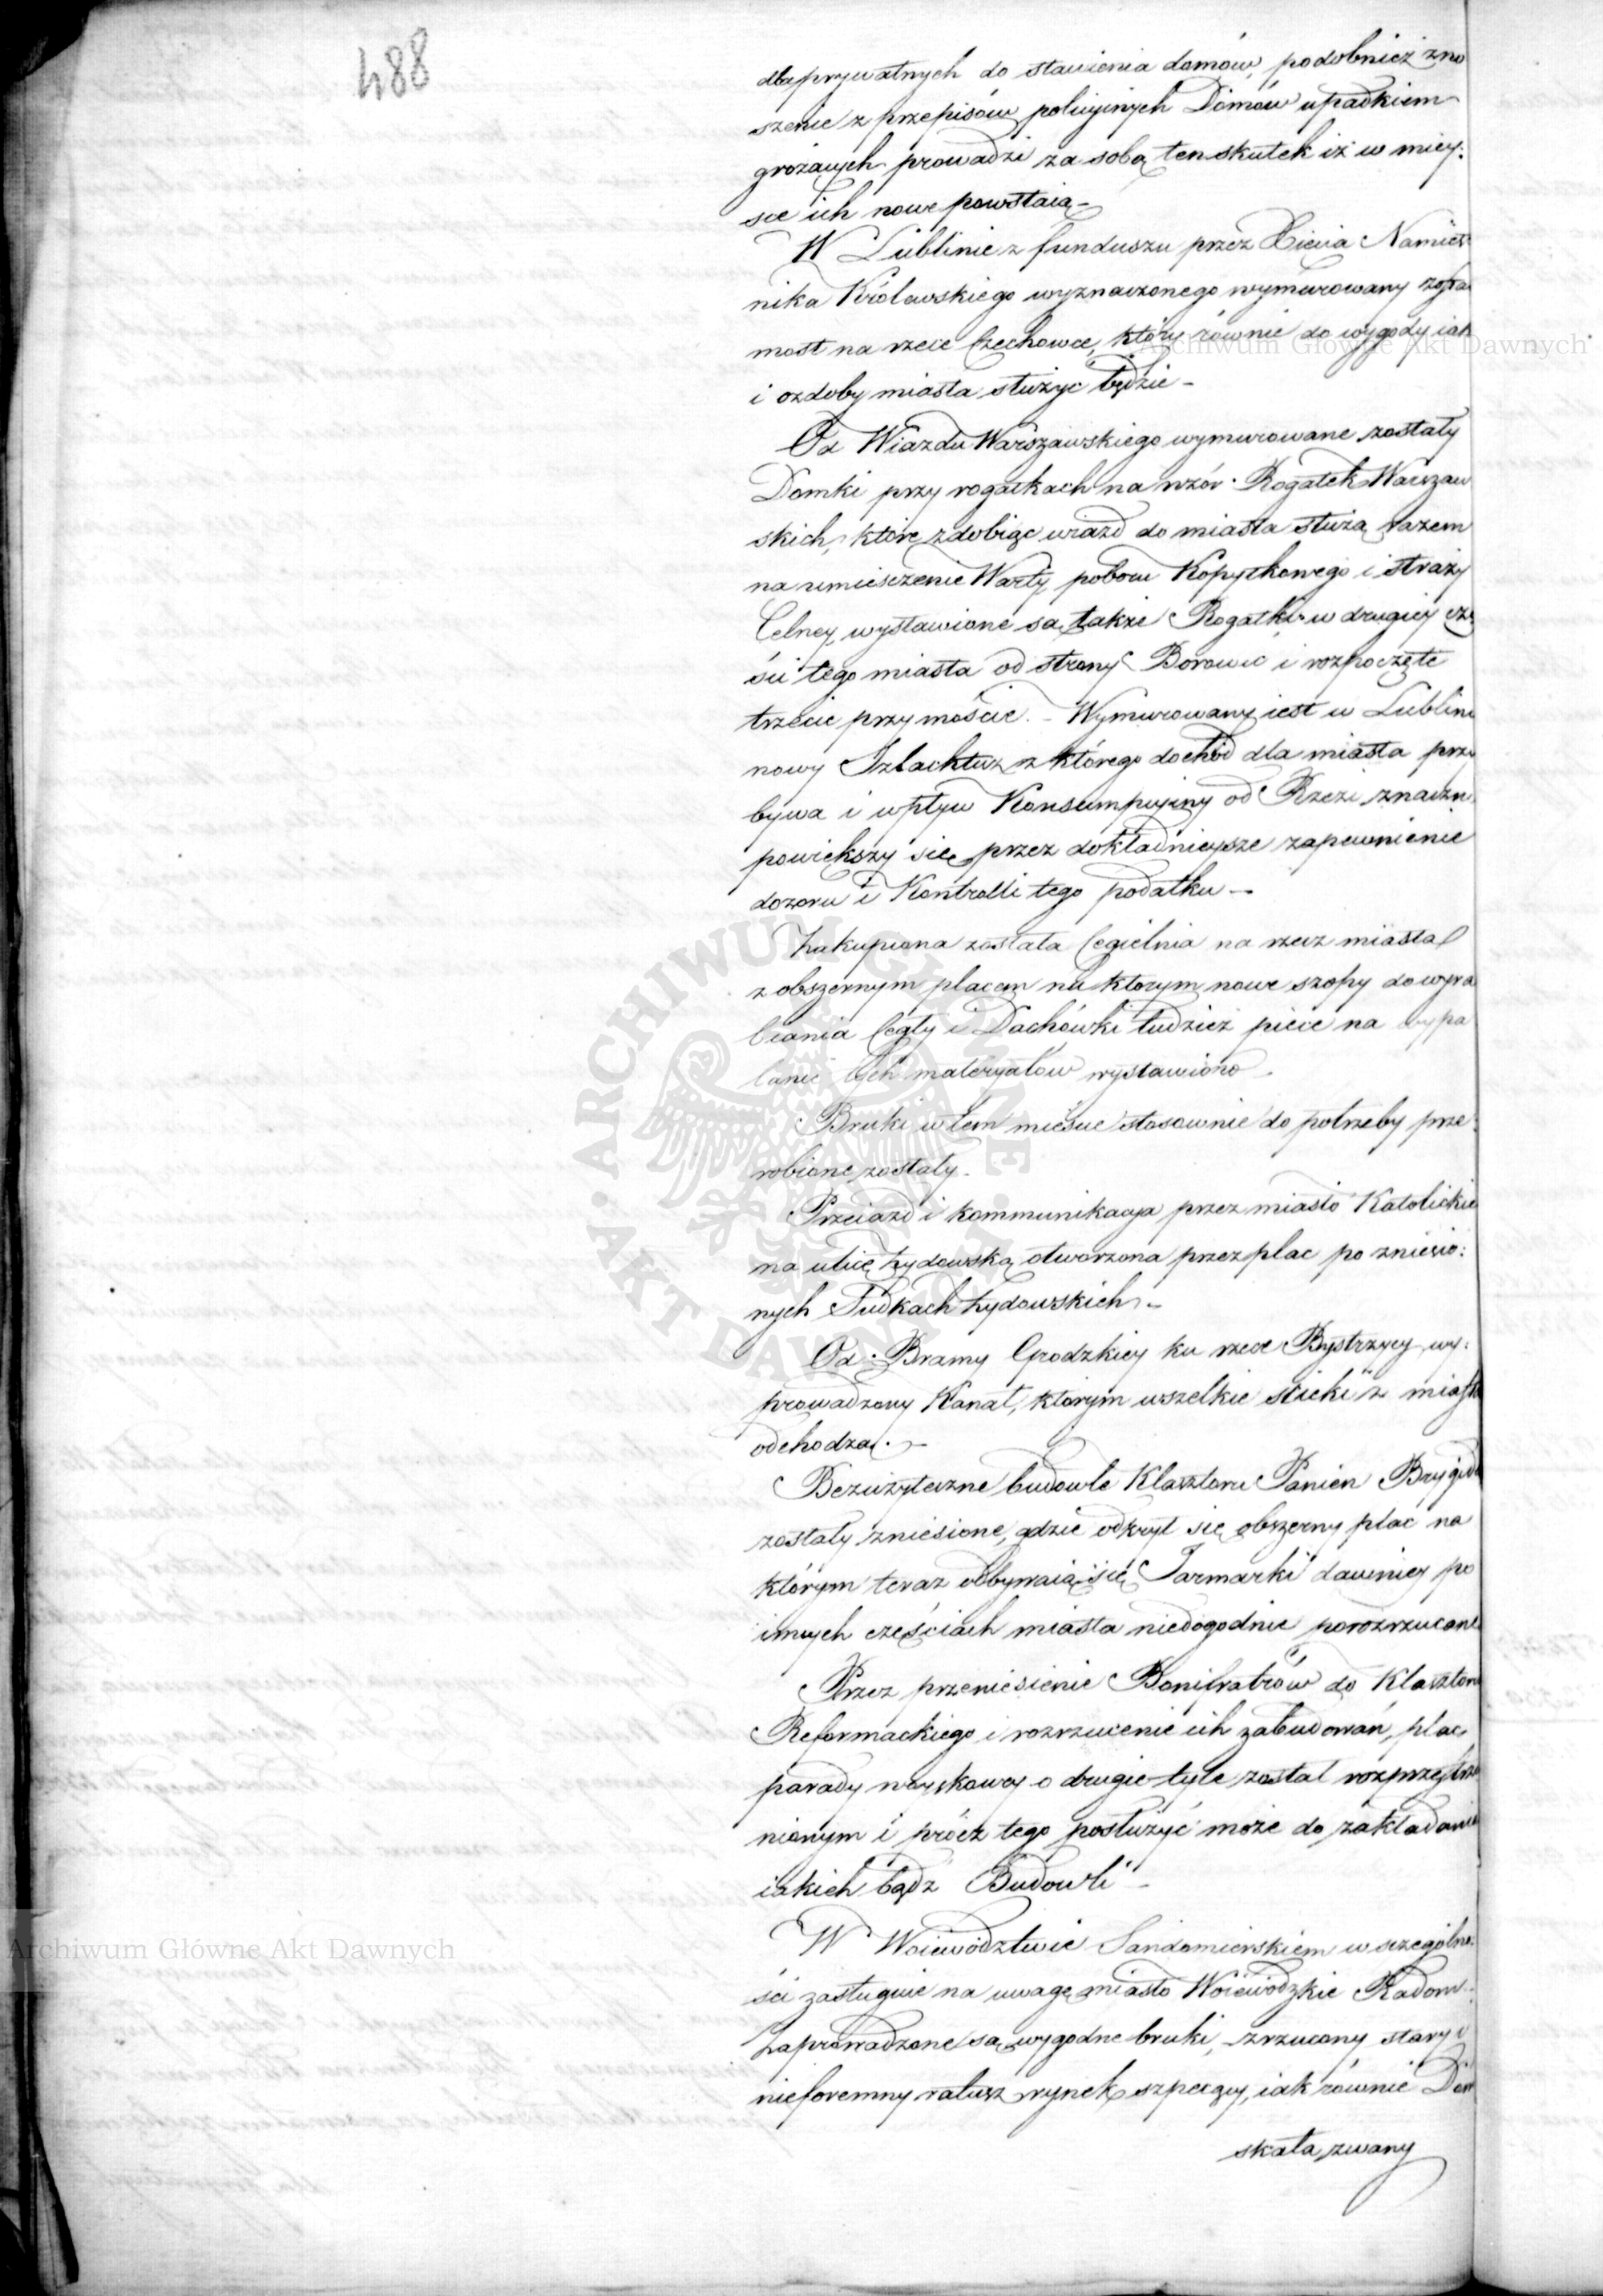 488
dla prywatnych do stawienia domów, podobnież zno
szenie z przepisów policyinych Domów upadkiem
grożących prowadzi za sobą ten skutek iż w miey:
sce ich nowe powstaią –
W Lublinie z funduszu przez Xięcia Namiest
nika Królewskiego wyznaczonego wymurowany zosta
most na rzece Czechowce, który równie do wygody iak
i ozdoby miasta służyć będzie –
Od Wiazdu Warszawskiego wymurowane zostały
Domki przy rogatkach na wzór Rogatek Warszaw
skich, które zdobiąc wiazd do miasta służą razem
na umiesczenie Warty, poboru Kopytkowego i straży
Celney, wystawione są także Rogatki w drugiey czę
ści tego miasta od strony Borowic i rozpoczęte
trzecie przy moście. – Wymurowany iest w Lublini
nowy Szlachtuz z którego dochód dla miasta przy
bywa i wpływ Konsumpcyiny od Rzezi znaczn
powiększy się przez dokładnieysze zapewnienie
dozoru i Kontrolli tego podatku –
Zakupiona została Cegielnia na rzecz miasta
z obszernym placem na którym nowe szopy do wyra
biania Cegły i Dachówki tudzież piece na wypa
lanie tych materyałów wystawiono –
Bruki w tem mieście stosownie do potrzeby prze:
robione zostały –
Przeiazd i kommunikacya przez miasto Katolickie
na ulicę żydowską otworzona przez plac po zniesio:
nych Judkach żydowskich –
Od Bramy Grodzkiey ku rzece Bystrzycy wy:
prowadzony Kanał, którym wszelkie ścieki z miasta
odchodzą. –
Bezużyteczne budowle Klasztoru Panien Brygide
zostały zniesione, gdzie odkrył się obszerny plac na
którym teraz odbywaią się Jarmarki dawniey po
innych częściach miasta niedogodnie porozrzucane
Przez przeniesienie Bonifratrów do Klasztoru
Reformackiego i rozrzucenie ich zabudowań, plac
parady woyskowey o drugie tyle został rozprzestrze
nionym i prócz tego posłużyć może do zakładania
iakich bądź Budowli –
W Woiewództwie Sandomierskiem w szczególno:
ści zasługuie na uwagę miasto Woiewódzkie Radom –
Zaprowadzone są wygodne bruki, zrzucony stary i
nieforemny ratusz rynek szpecący, iak równie Dom
skała zwany
Archiwum Główne Akt Dawnych
Archiwum Główne Akt Dawnych
ARCHIWUM GŁÓWNE AKT DAWNYCH